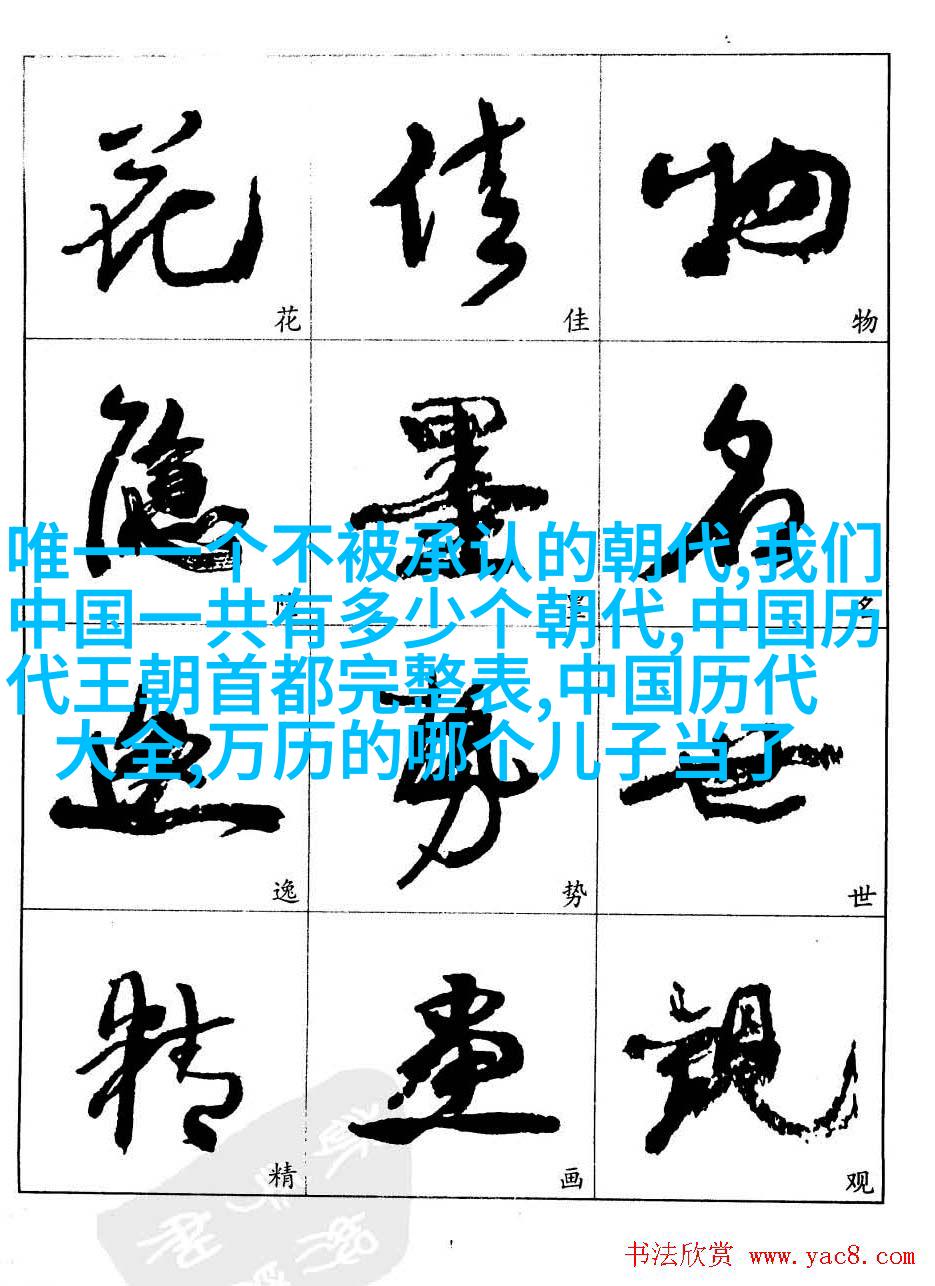 花 佳 物
花 佳 物
隐 墨 名
唯一一个不被承认的朝代,我们
隐 墨 名
中国一共有多少个朝代,中国历
代王朝首都完整表,中国历代
大全,万历的哪个儿子当了
逸 势 世
逸 势 世
精 画 观
精 画 观
书法欣赏 www.yac8.com